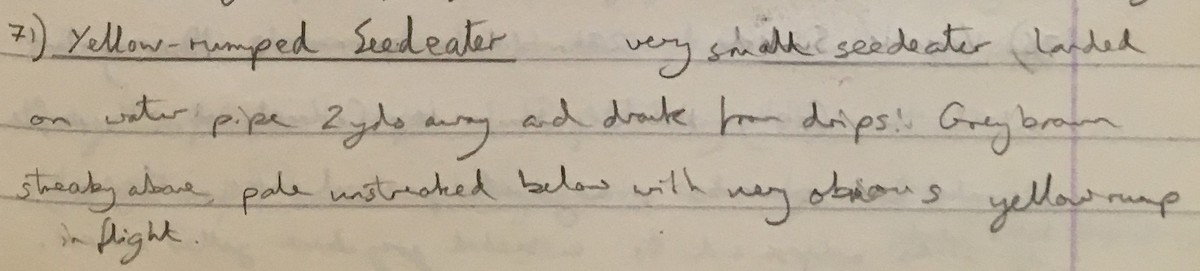 71) Yellow-rumped Seedeater very small seedeater landed
on water pipe 2 yds away and drank from drips! Grey brown
streaky above, pale unstreaked below with very obvious yellow rump
in flight.